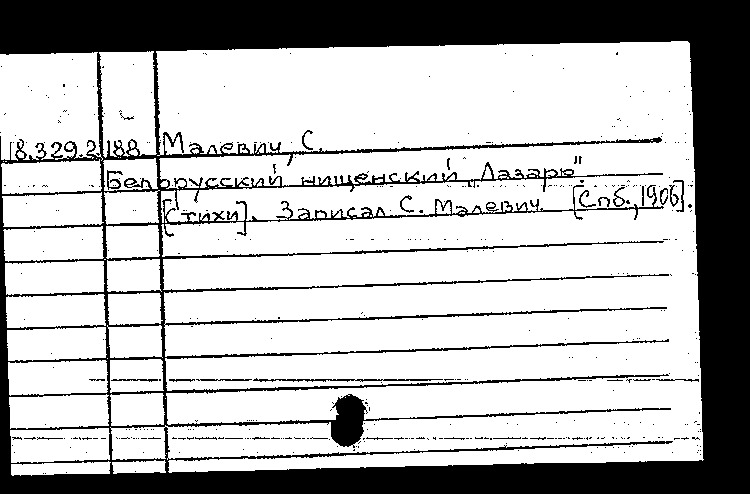 18.329.2 188 Малевич, С.
Белорусский нищенский „Лазарь".
[Стихи]. Записал С. Малевич. [Спб., 1906].